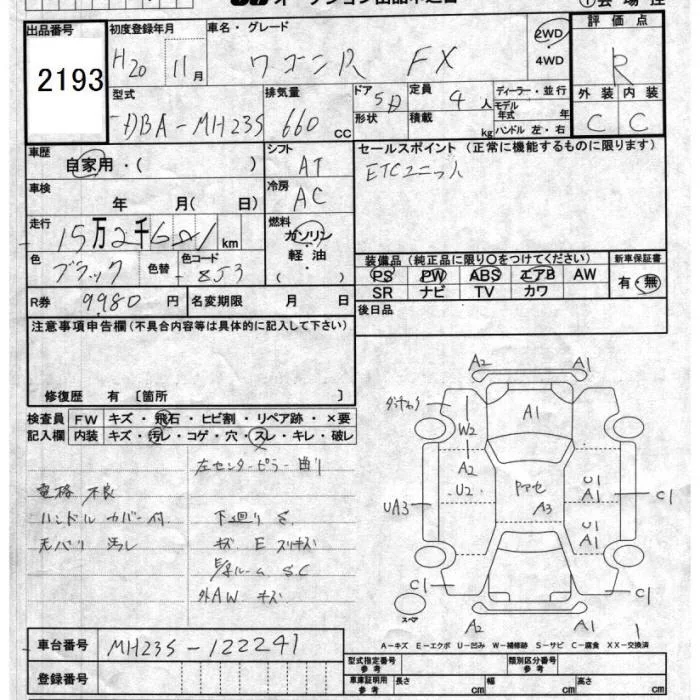 出品番号
2193
初度登録年月
H20 11月
車名・グレード
ワゴンR FX
2WD
4WD
評価点
R
外装 内装
C C
型式
DBA-MH23S
排気量
660 cc
ドア 5D
形状
定員 4人
積載 kg
ディーラー・並行
モデル
年式 年
ハンドル 左・右
車歴
自家用・( )
シフト
AT
セールスポイント (正常に機能するものに限ります)
ETCユニット
車検
年 月( 日)
冷房
AC
走行
15万2千681km
燃料
ガソリン
軽油
( )
色
ブラック
色替
色コード
ZJ3
装備品 (純正品に限り○をつけてください)
PS PW ABS エアB AW
SR ナビ TV カワ
新車保証書
有・無
R券 9980円
名変期限 月 日
後日品
注意事項申告欄(不具合内容等は具体的に記入して下さい)
修復歴 有 〔箇所 〕
検査員
記入欄
FW キズ・飛石・ヒビ割・リペア跡・×要
内装 キズ・汚レ・コゲ・穴・スレ・キレ・破レ
左センターピラー曲り
電格 不良
ハンドルカバー付
下廻り S
天バリ 汚レ
キズ E スリキズ
S.C
外AW キズ
A2 A1
W2
A1
A2
U2
UA3
A3
U1
A1
C1
U1
A1
C1 C1
スペア
A2 A1 1
A-キズ E-エクボ U-凹み W-補修跡 S-サビ C-腐食 XX-交換済
車台番号
MH23S-122241
登録番号
型式指定番号
参考
類別区分番号
参考
車庫証明用
参考
長さ cm
幅 cm
高さ cm